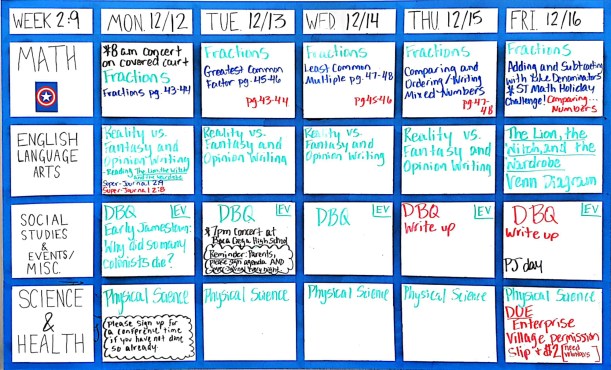 WEEK 2:9
MON. 12/12
TUE. 12/13
WED 12/14
THU. 12/15
FRI. 12/16
MATH
$8 am concert
on covered court
Fractions
Fractions pg. 43-44
Fractions
Greatest Common
Factor pg. 45-46
pg. 43-44
Fractions
Least Common
Multiple pg. 47-48
pg 45-46
Fractions
Comparing and
Ordering/Writing
Mixed Numbers
pg. 47-
48
Fractions
Adding and Subtracting
with Like Denominators
$ ST Math Holiday
Challenge! Comparing...
Numbers
ENGLISH
LANGUAGE
ARTS
Reality vs.
Fantasy and
Opinion Writing
-Reading The Lion, the Witch
and the Wardrobe
Super-Journal 2:9
Super-Journal 2:8
Reality vs.
Fantasy and
Opinion Writing
Reality vs.
Fantasy and
Opinion Writing
Reality vs.
Fantasy and
Opinion Writing
The Lion, the
Witch, and the
Wardrobe
Venn Diagram
SOCIAL
STUDIES
&
EVENTS/
MISC.
DBQ EV
Early Jamestown:
Why did so many
colonists die?
DBQ EV
$ 7pm concert at
Boca Ciega High School
Reminder: Parents,
please sign agenda AND
DBQ EV
DBQ EV
Write up
DBQ EV
Write up
PJ day
SCIENCE
&
HEALTH
Physical Science
Please sign up for
a conference time
if you have not done
so already.
Physical Science
Physical Science
Physical Science
Physical Science
DUE
Enterprise
Village permission
slip + $2 [need